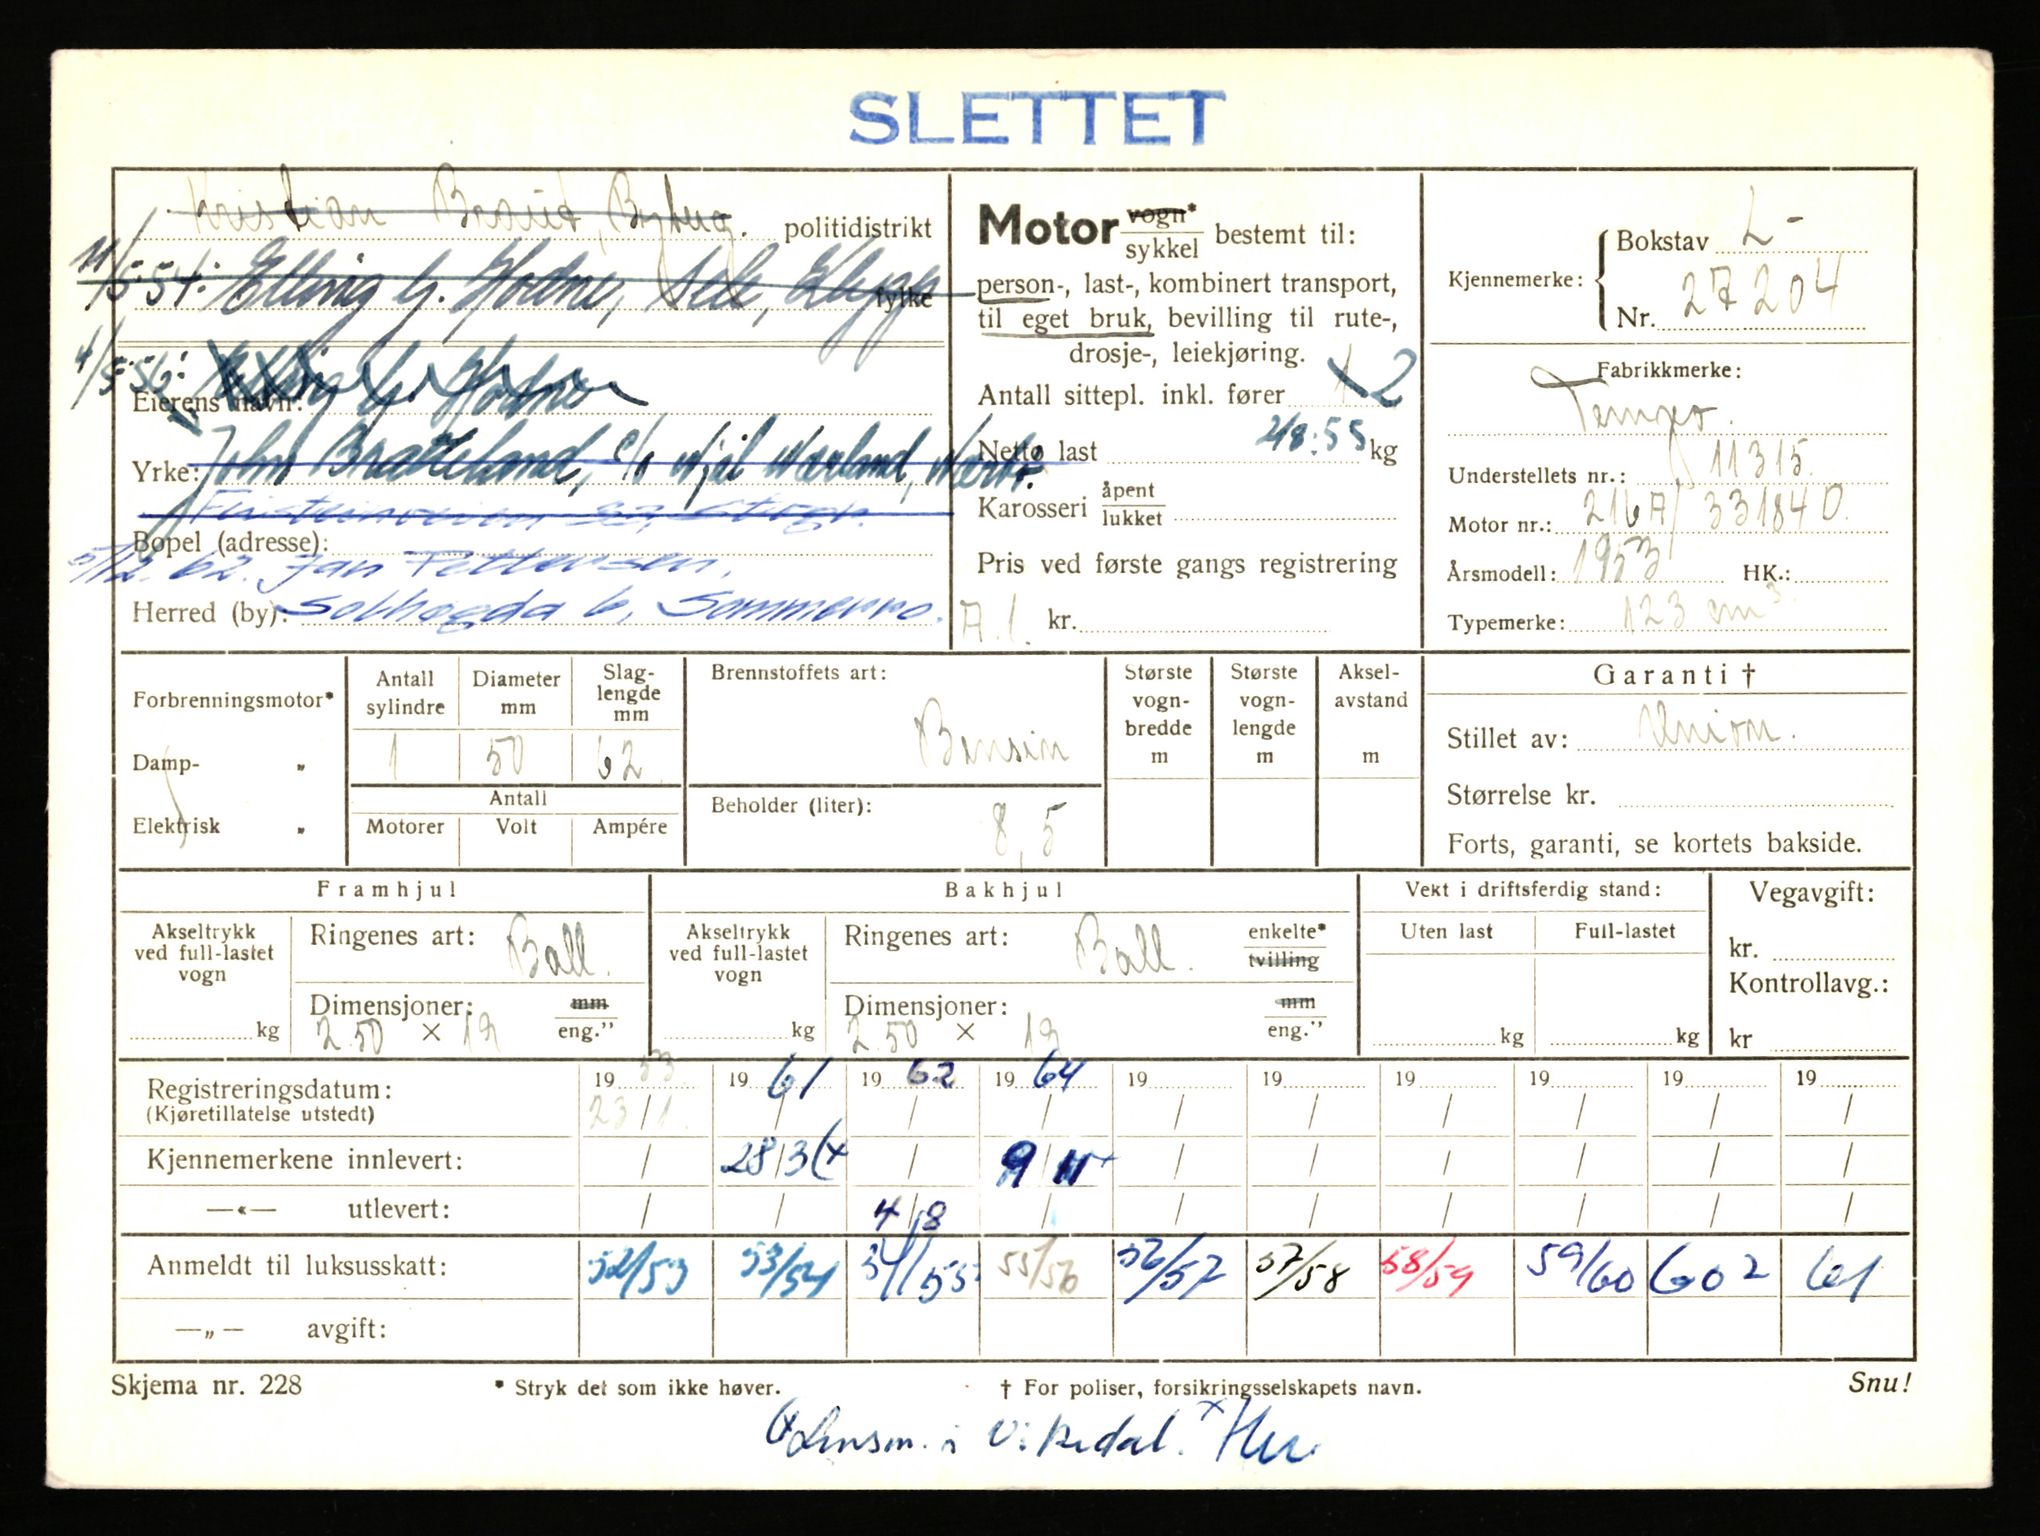 SLETTET
Kristian Braut, Byberg. politidistrikt
11/5-54: Elling G. Hodne, Sele, Klepp fylke
4/5-56: Elling G. Hodne
Eierens navn:
Yrke: John Bratteland, c/o
Bopel (adresse):
5/12.62. Jan Pettersen,
Herred (by): Solhøgda 6, Sommerro.
Motor vogn* sykkel bestemt til:
person-, last-, kombinert transport,
til eget bruk, bevilling til rute-,
drosje-, leiekjøring.
Antall sittepl. inkl. fører 1 2
Netto last 2/8:55 kg
Karosseri åpent lukket
Pris ved første gangs registrering
A.l. kr.
Kjennemerke: Bokstav L-
Nr. 27204
Fabrikkmerke:
Tempo.
Understellets nr.: 11315.
Motor nr.: 216A/ 331840.
Årsmodell: 1953 HK.:
Typemerke: 123 cm³.
Forbrenningsmotor*
Damp- „
Elektrisk „
Antall sylindre 1
Diameter mm 50
Slag-lengde mm 62
Antall
Motorer Volt Ampére
Brennstoffets art:
Bensin
Beholder (liter):
8,5
Største vogn-bredde m
Største vogn-lengde m
Aksel-avstand m
Garanti †
Stillet av: Union.
Størrelse kr.
Forts, garanti, se kortets bakside.
Framhjul
Akseltrykk ved full-lastet vogn
kg
Ringenes art: Ball.
Dimensjoner: mm
2.50 × 19 eng.”
Bakhjul
Akseltrykk ved full-lastet vogn
kg
Ringenes art: Ball. enkelte* tvilling
Dimensjoner: mm
2.50 × 19 eng.”
Vekt i driftsferdig stand:
Uten last Full-lastet
kg kg
Vegavgift:
kr.
Kontrollavg.:
kr
Registreringsdatum: 19 53 19 61 19 62 19 64 19 19 19 19 19 19
(Kjøretillatelse utstedt) 23/1. / / / / / / / / /
Kjennemerkene innlevert: / 28/3 (x / 9/11+ / / / / / /
—«— utlevert: / / 4/8 / / / / / / /
Anmeldt til luksusskatt: 52/53 53/54 54/55 55/56 56/57 57/58 58/59 59/60 60 2 61
—„— avgift:
Skjema nr. 228 * Stryk det som ikke høver. † For poliser, forsikringsselskapets navn. Snu!
Lensm. i Vikedal. x Her